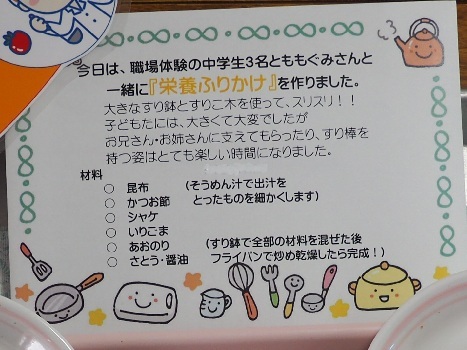 今日は、職場体験の中学生3名とももぐみさんと
一緒に『栄養ふりかけ』を作りました。
大きなすり鉢とすりこ木を使って、スリスリ！！
子どもたには、大きくて大変でしたが
お兄さん・お姉さんに支えてもらったり、すり棒を
持つ姿はとても楽しい時間になりました。
材料
○ 昆布 （そうめん汁で出汁を
○ かつお節 とったものを細かくします）
○ シャケ
○ いりごま
○ あおのり （すり鉢で全部の材料を混ぜた後
○ さとう・醤油 フライパンで炒め乾燥したら完成！）